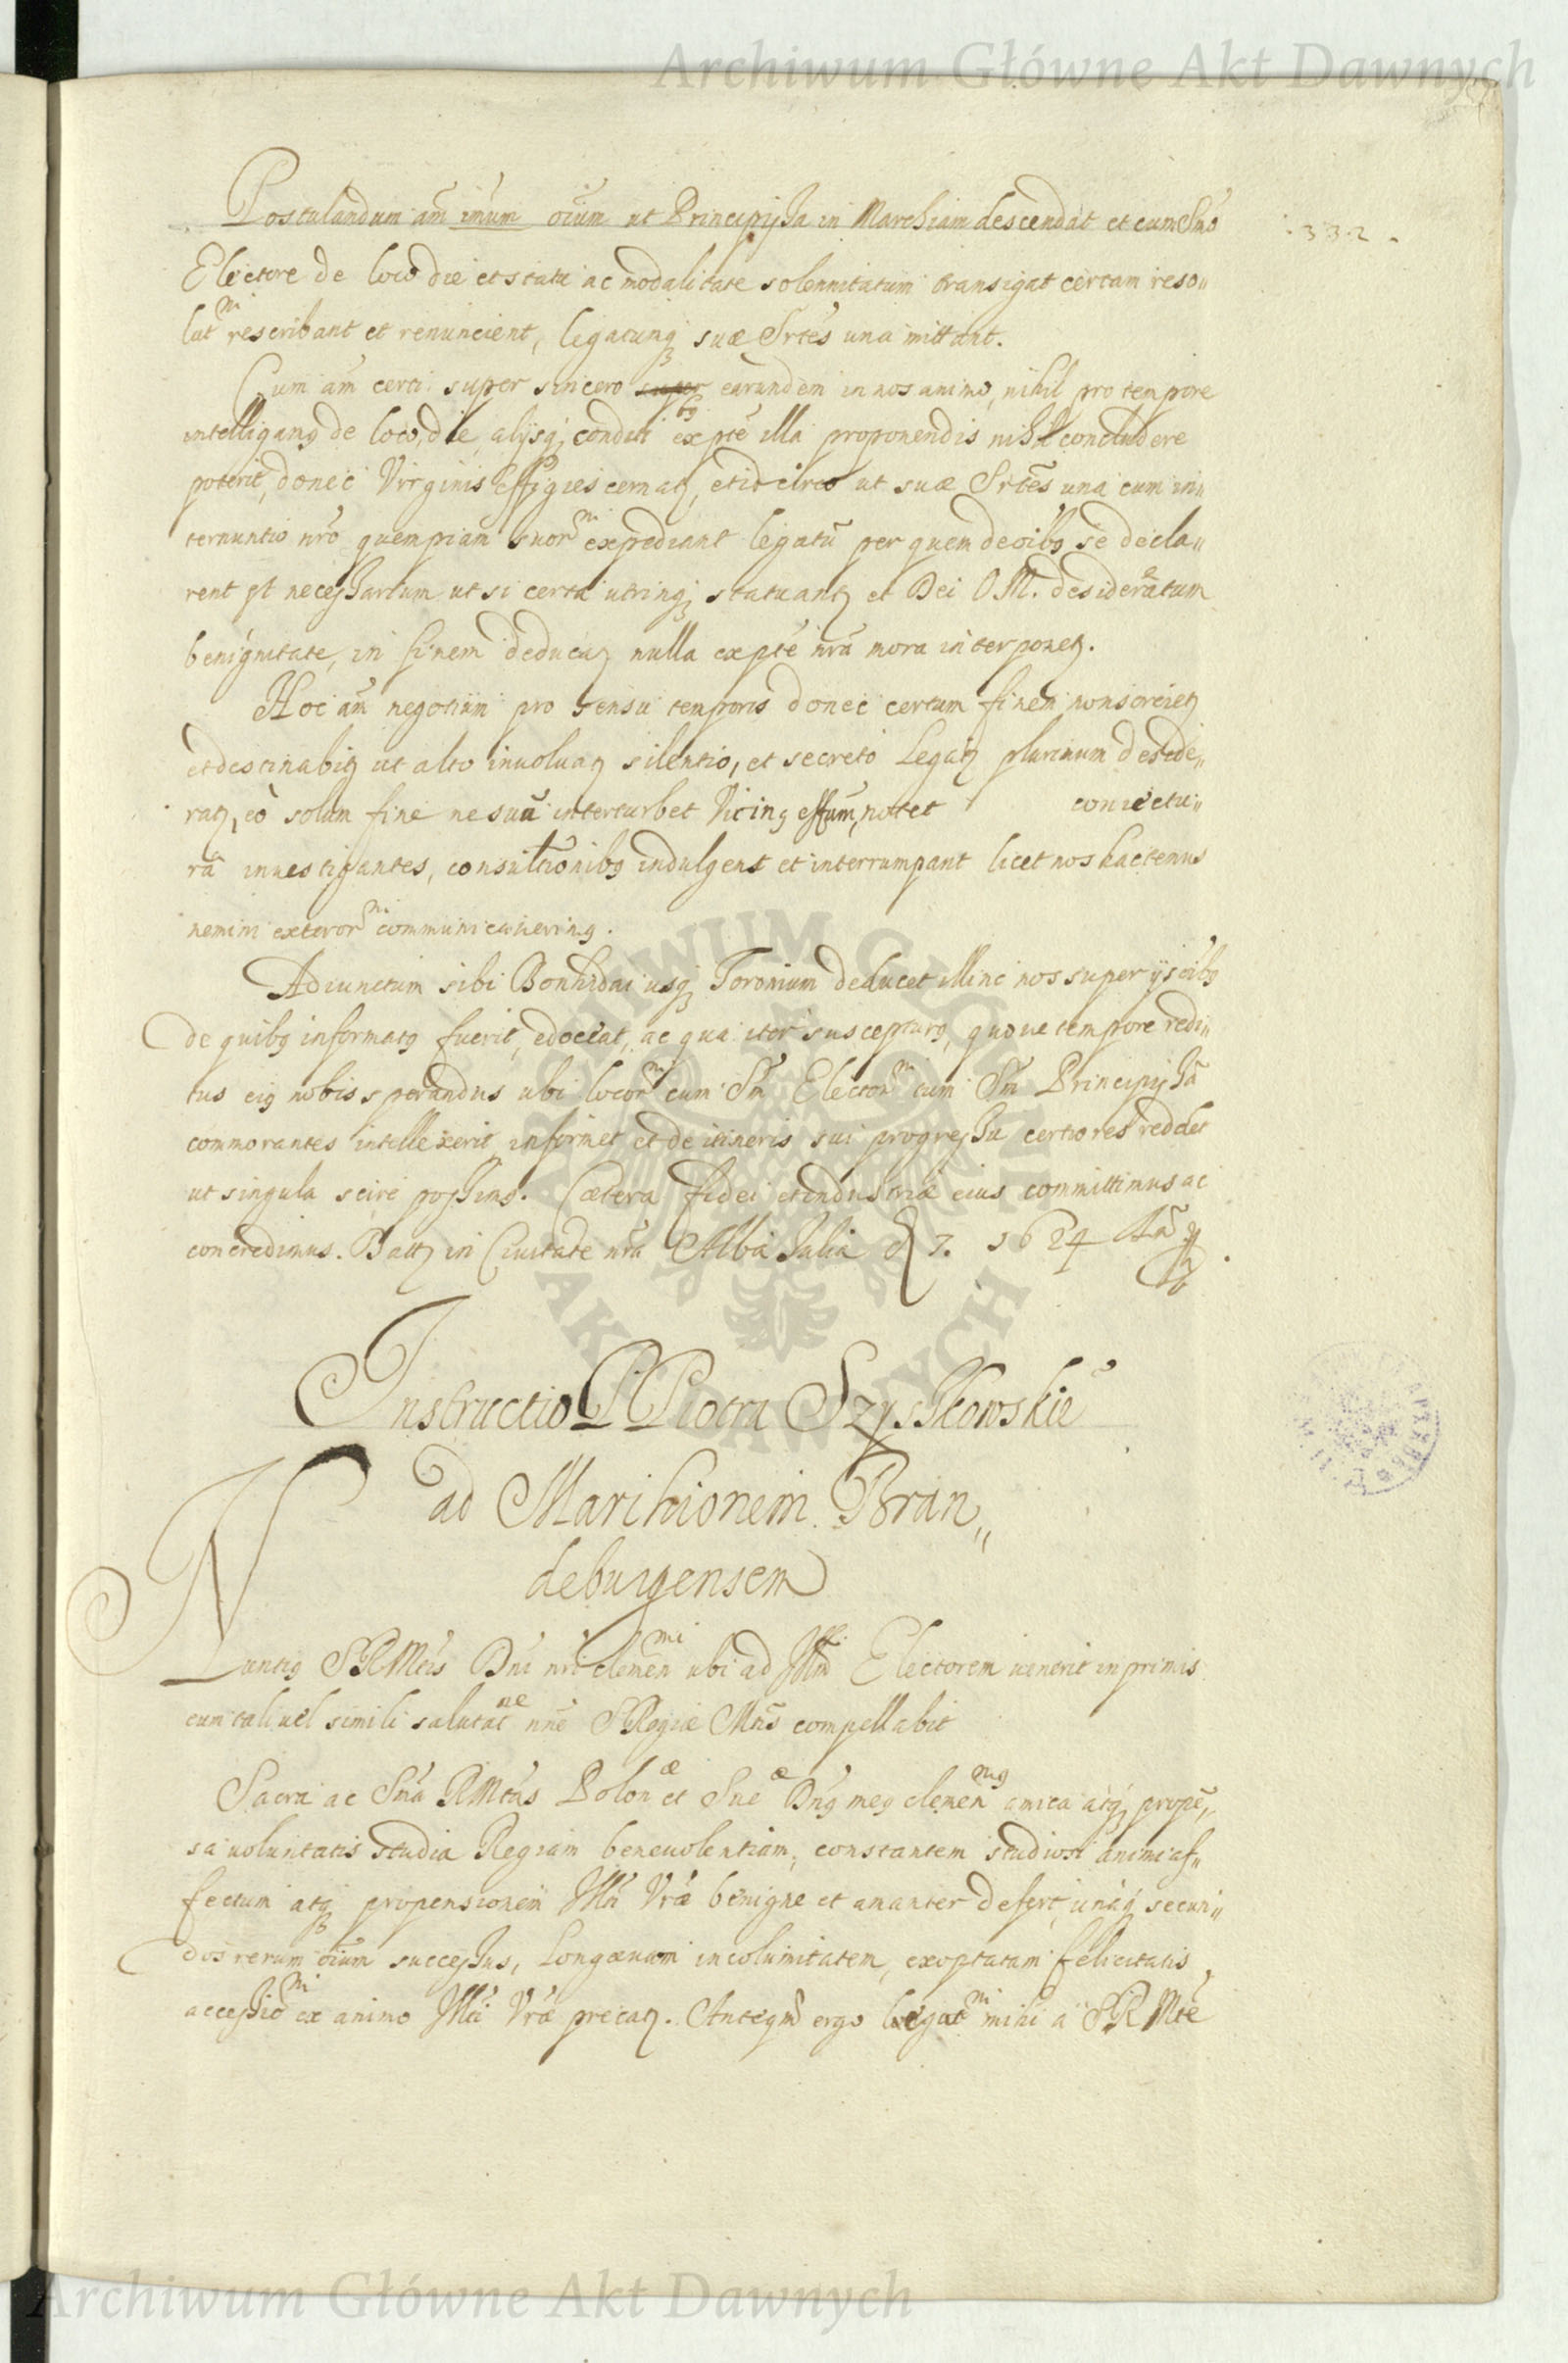 Archiwum Główne Akt Dawnych
Postulandum am̃ imum oium ut Principissa in Marchiam descendat et cum Smo
.332.
Electore de loco die et statu ac modalitate solennitatum transigat certam reso„
lut^m rescribant et renuncient, legatumq; suæ Srtes una mittant.
Cum am̃ certi super sincero super earundem in nos animo, nihil pro tempore
intelligamg de loco, die, alijsq; condit^bg ex pte illa proponendis nihil concludere
poterit, donec Virginis Effigies cernatz, et idcirco ut suæ Srtes una cum in„
ternuntio nro quempiam suor^m expediant legatũ per quem de oibg se decla„
rent pt necessarium ut si certa utrinq; statuantz et Dei O M. desideratum
benignitate, in finem deducatz nulla ex pte nra mora interponetz.
Hoc am̃ negotium pro sensu temporis donec certum finem non sorcietz
et destinabitz ut alto involuatz silentio, et secreto Legatz plurimum deside„
ratz, eò solum fine ne suũ interturbet Vicing effum, notet coniectu„
rã investigantes, consultionibg indulgent et interrumpant licet nos hactenus
nemini exteror^m communicaverimg.
Adiunctum sibi Bonhidai usq; Toronium deducet illinc nos super ijs oibg
de quibg informatg fuerit, edoceat, ac qua iter suscepturg, quove tempore redi„
tus eig nobis sperandus ubi locor^m cum Sm̃ Elector^m cum Sm̃ Principissã
commorantes intellexerit informet et de itineris sui progressu certiores reddet
ut singula scire possimg. Cætera fidei et industriæ eius committimus ac
concredimus. Dattz in Civitate nra Alba Julia d 7. 1624
Instructio P Piotra Szyszkowskie^o
ad Marchionem Bran„
deburgensem
Nuntig SRMtis Dni nri clemen^mi ubi ad Illm̃ Electorem venerit inprimis
cum tali vel simili salutat^ne nñe SRegiæ Mtis compellabit
Sacra ac Sma RMtas Polon^æ et Sue^æ Dng meg clemen^mg amica atq; propẽ„
sa voluntatis studia Regiam benevolentiam, constantem studiosi animi af„
fectum atq; propensionem Illi Vræ benigne et amanter defert, unaq; secun„
dos rerum oium successus, Longævam incolumitatem, exoptatam felicitatis
accessio^m ex animo Illi Vræ precatz. Anteqm̃ ergo legat^m mihi a SRMte
Archiwum Główne Akt Dawnych